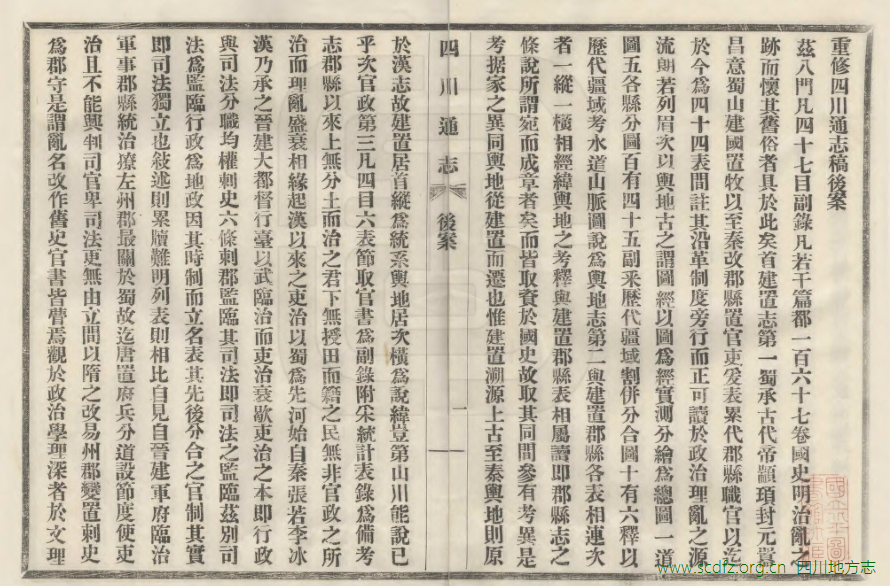 重修四川通志稿後案
茲八門凡四十七目副錄凡若干篇都一百六十七卷國史明治亂之
跡而懷其舊俗者具於此矣首建置志第一蜀承古代帝顓頊封元囂
昌意蜀山建國置牧以至秦改郡縣置官吏爰表累代郡縣職官以迄
於今爲四十四表間註其沿革制度旁行而正可讀於政治理亂之源
流朗若列眉次以輿地古之謂圖經以圖爲經實測分繪爲總圖一道
圖五各縣分圖百有四十五副釆歷代疆域割併分合圖十有六釋以
歷代疆域考水道山脈圖說爲輿地志第二與建置郡縣各表相連次
者一縱一橫相經緯輿地之考釋與建置郡縣表相屬讀即郡縣志之
條說所謂宛而成章者矣而皆取資於國史故取其同間參有考異是
考据家之異同輿地從建置而遷也惟建置溯源上古至秦輿地則原
四川通志
後案
二
於漢志故建置居首縱爲統系輿地居次橫爲說緯豈第山川能說已
乎次官政第三凡四目六表節取官書爲副錄附采統計表錄爲備考
志郡縣以來上無分土而治之君下無授田而籍之民無非官政之所
治而理亂盛衰相緣起漢以來之吏治以蜀爲先河始自秦張若李冰
漢乃承之晉建大都督行臺以武臨治而吏治衰歇吏治之本即行政
與司法分職均權刺史六條刺郡監臨其司法即司法之監臨茲別司
法爲監臨行政爲地政因其時制而立名表其先後分合之官制其實
即司法獨立也敍述則累牘難明列表則相比自見自晉建軍府臨治
軍事郡縣統治獠左州郡最關於蜀故迄唐置府兵分道設節度使吏
治且不能興判司官卑司法更無由立間以隋之改易州郡變置刺史
爲郡守是謂亂名改作舊史官書皆瞢焉觀於政治學理深者於文理
www.scdfz.org.cn 四川地方志